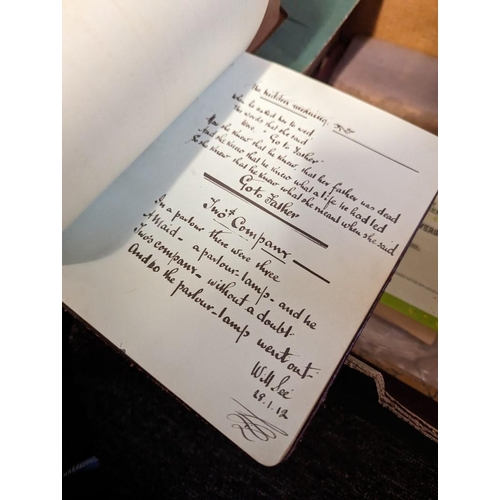 The hidden meaning.
When he asked her to wed
The words that she said
Were "Go to Father"
Now she knew that he knew that her father was dead
And she knew that he knew what a life he had led
So she knew that he knew what she meant when she said
Go to Father
Two's Company
In a parlour there were three
A Maid - a parlour-lamp - and he
Two's company - without a doubt.
And so the parlour-lamp went out.
Will See
29.1.12